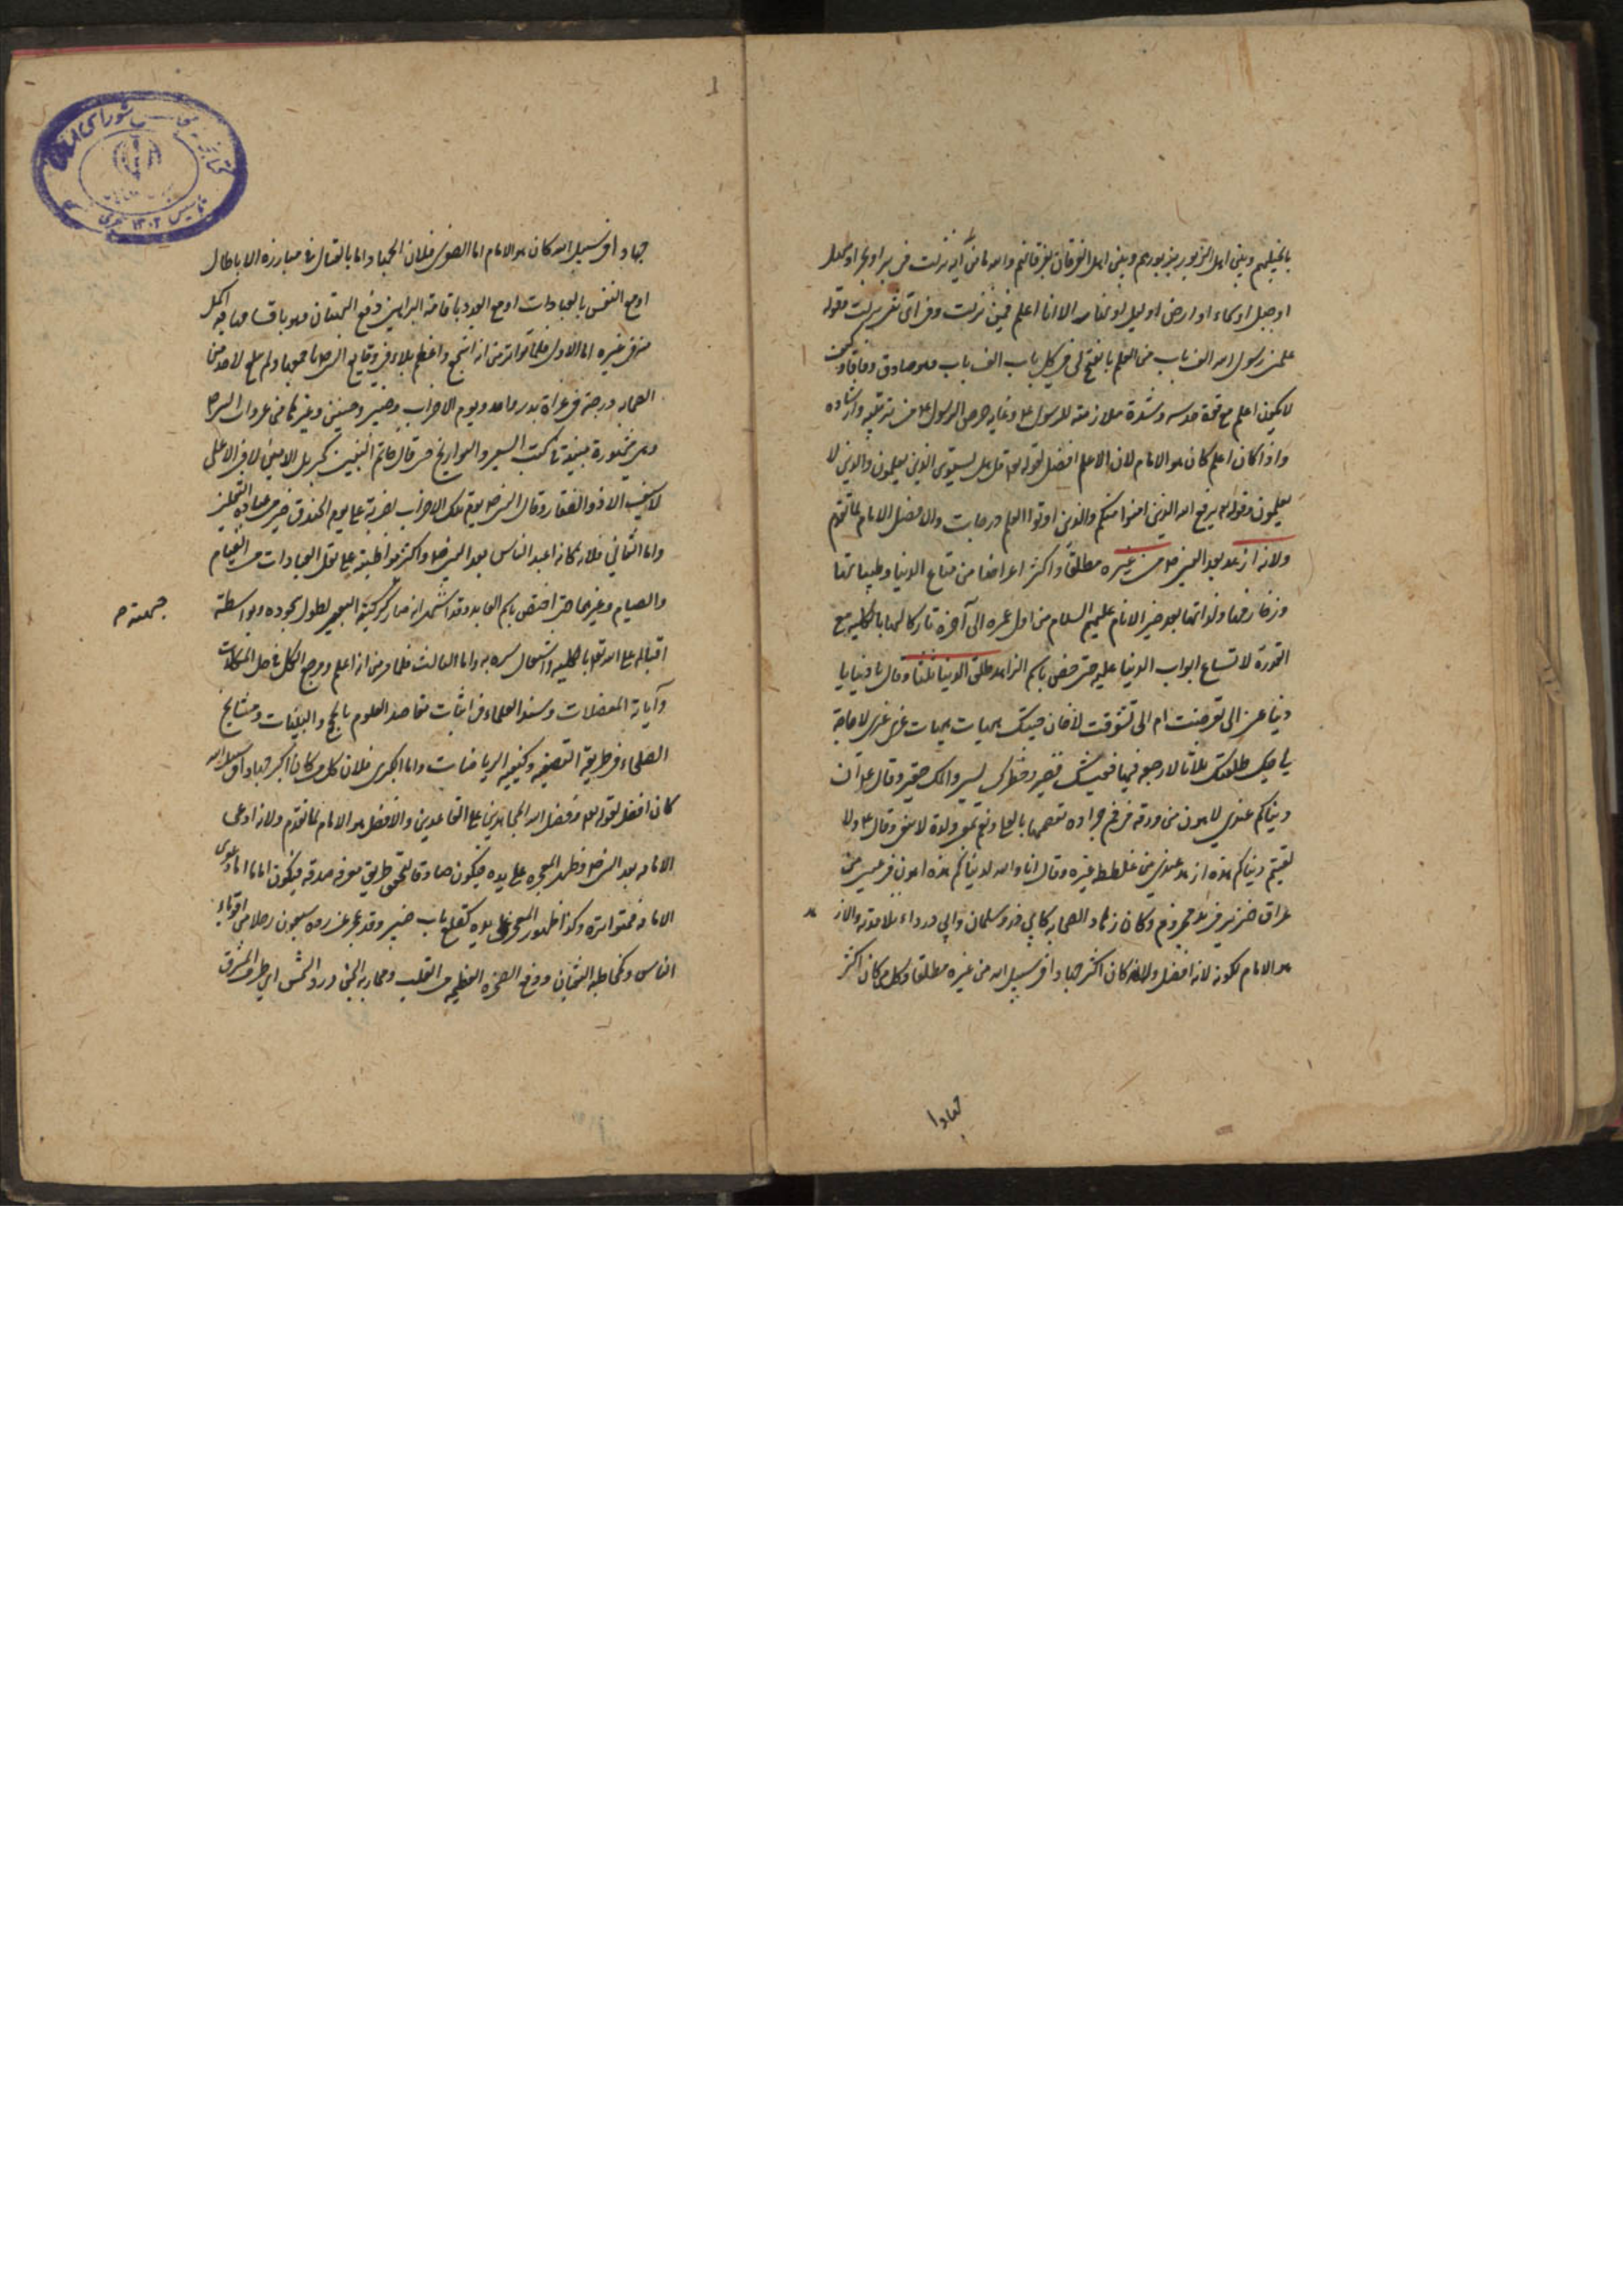 بانجيلهم وبين اهل الزبور بزبورهم وبين اهل الفرقان بفرقانهم والله ما من آية نزلت في بر او بحر او سهل
او جبل او سماء او ارض او ليل او نهار الا انا اعلم فيمن نزلت وفي اي نزلت وقوله
علمني رسول الله الف باب من العلم فانفتح لي في كل باب الف باب وهو صادق وكيف
لا يكون اعلم مع قوة حدسه وشدة ملازمته للرسول ع وغاية حرص الرسول ع في تربيته وارشاده
واذا كان اعلم كان هو الامام لان الاعلم افضل لقوله تع قل هل يستوى الذين يعلمون والذين لا
يعلمون وقوله يرفع الله الذين امنوا منكم والذين اوتوا العلم درجات والافضل الامام لما تقدم
ولانه ازهد بعد النبي ص من غيره مطلقا واكثر اعراضا من متاع الدنيا وطيباتها
وزخارفها ولذاتها بعد خير الانام عليهم السلام من اول عمره الى آخره تاركا لها بالكلية مع
القدرة لاتساع ابواب الدنيا عليه حتى خص باسم الزاهد طلق الدنيا ثلثا وقال يا دنيا يا
دنيا عني الى تعرضت ام الى تشوقت لا حان حينك هيهات هيهات غري غيري لا حاجة
لي فيك طلقتك ثلاثا لا رجعة فيها فعيشك قصير وخطرك يسير واملك حقير وقال ع ان
دنياكم عندي لاهون من ورقة في فم جرادة تقضمها ما لعلي ونعيم ولذة لا تبقى وقال ع ولا
لفيتم دنياكم هذه ازهد عندي من عفطة عنز وقال والله لدنياكم هذه اهون في عيني من
عراق خنزير في يد مجذوم وكان زهاد الصحابة كابي ذر وسلمان وابي درداء تلامذته والازهد
هو الامام لكونه لانه افضل ولانه كان اكثر جهادا في سبيل الله من غيره مطلقا وكل من كان اكثر
جهادا
جهادا في سبيل الله كان هو الامام اما الصغرى فلان الجهاد اما بالقتال في مبارزة الابطال
او مع النفس بالعبادات او مع العدو باقامة البراهين ودفع البهتان وهو باقسامها فيه اكمل
من في غيره اما الاول فلما تواتر من انه اشجع واعظم بلاء في وقايع النبي ص باجمعها ولم يبلغ لاحد من
الصحابة درجته في غزاة بدر واحد ويوم الاحزاب وخيبر وحنين وغيرها من غزوات النبي ص
وهي مشهورة مبينة في كتب السير والتواريخ حتى قال خاتم النبيين جبريل الامين لا فتى الا علي
لا سيف الا ذو الفقار وقال النبي ص يوم تلك الاحزاب لضربة علي يوم الخندق خير من عبادة الثقلين
واما الثاني فلانه كان اعبد الناس بعد النبي ص واكثر مواظبة على نقل العبادات من القيام
والصيام وغيرهما حتى اختص باسم العابد وقد اشتهر انه صار كركبة البعير لطول سجوده وبواسطة
جبهته ح
اقباله على الله تع بالكلية واشتغال سره به واما الثالث فلما مر من انه اعلم ومرجع الكل في حل المشكلات
وآيات المعضلات وسند العلماء في اثبات مقاصد العلوم بالحجج والبينات ومشايخ
الصلحاء في طريقة التصفية وكيفية الرياضات واما الكبرى فلان كل من كان اكثر جهادا في سبيل الله
كان افضل لقوله تع وفضل الله المجاهدين على القاعدين والافضل هو الامام لما تقدم ولانه ادعى
الامامة بعد النبي ص وظهر المعجزة على يده فيكون صادقا لتحقق طريق معرفة صدقه فيكون اماما اما دعوى
الامامة فمتواترة وكذا ظهور المعجز على يده كقلع باب خيبر وقد عجز عن رده سبعون رجلا من اقوياء
الناس وكمخاطبة الثعبان ورفع الصخرة العظيمة عن القليب ومحاربة الجن ورد الشمس الى طرف المشرق